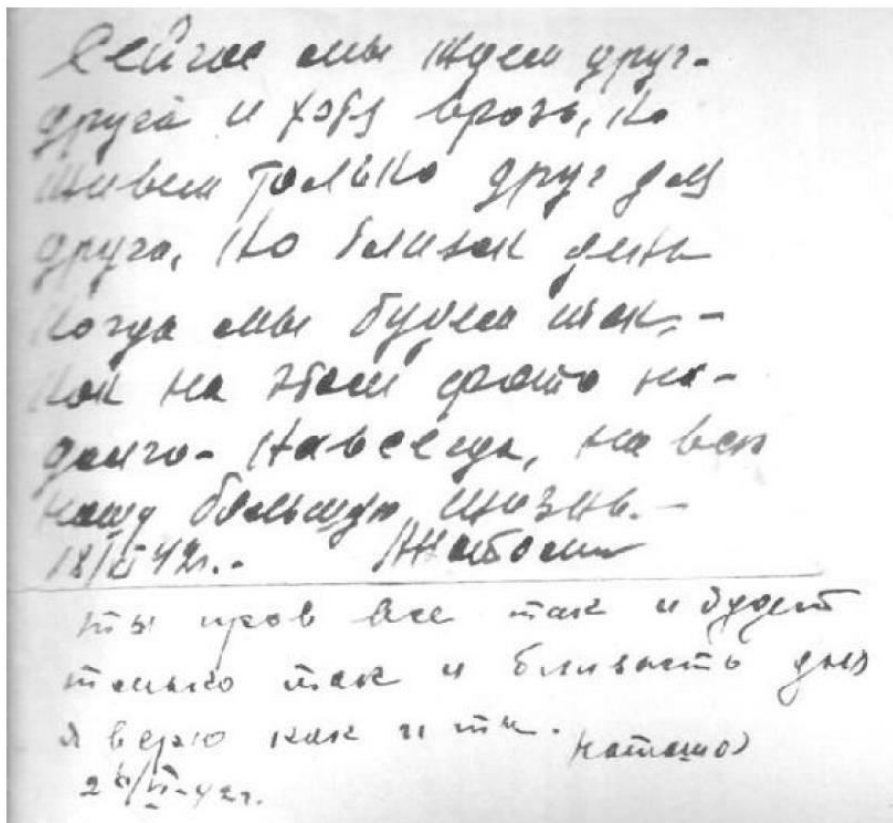 Сейчас мы ждем друг-
друга и хотя врозь, но
живем только друг для
друга, но близок день
когда мы будем так,-
как на этом фото на-
долго- навсегда, на всю
нашу большую жизнь.-
18/VI 42г..
ты прав все так и будет
только так и близость дня
я верю как и ты.
Наташа
2 /VI-42г.